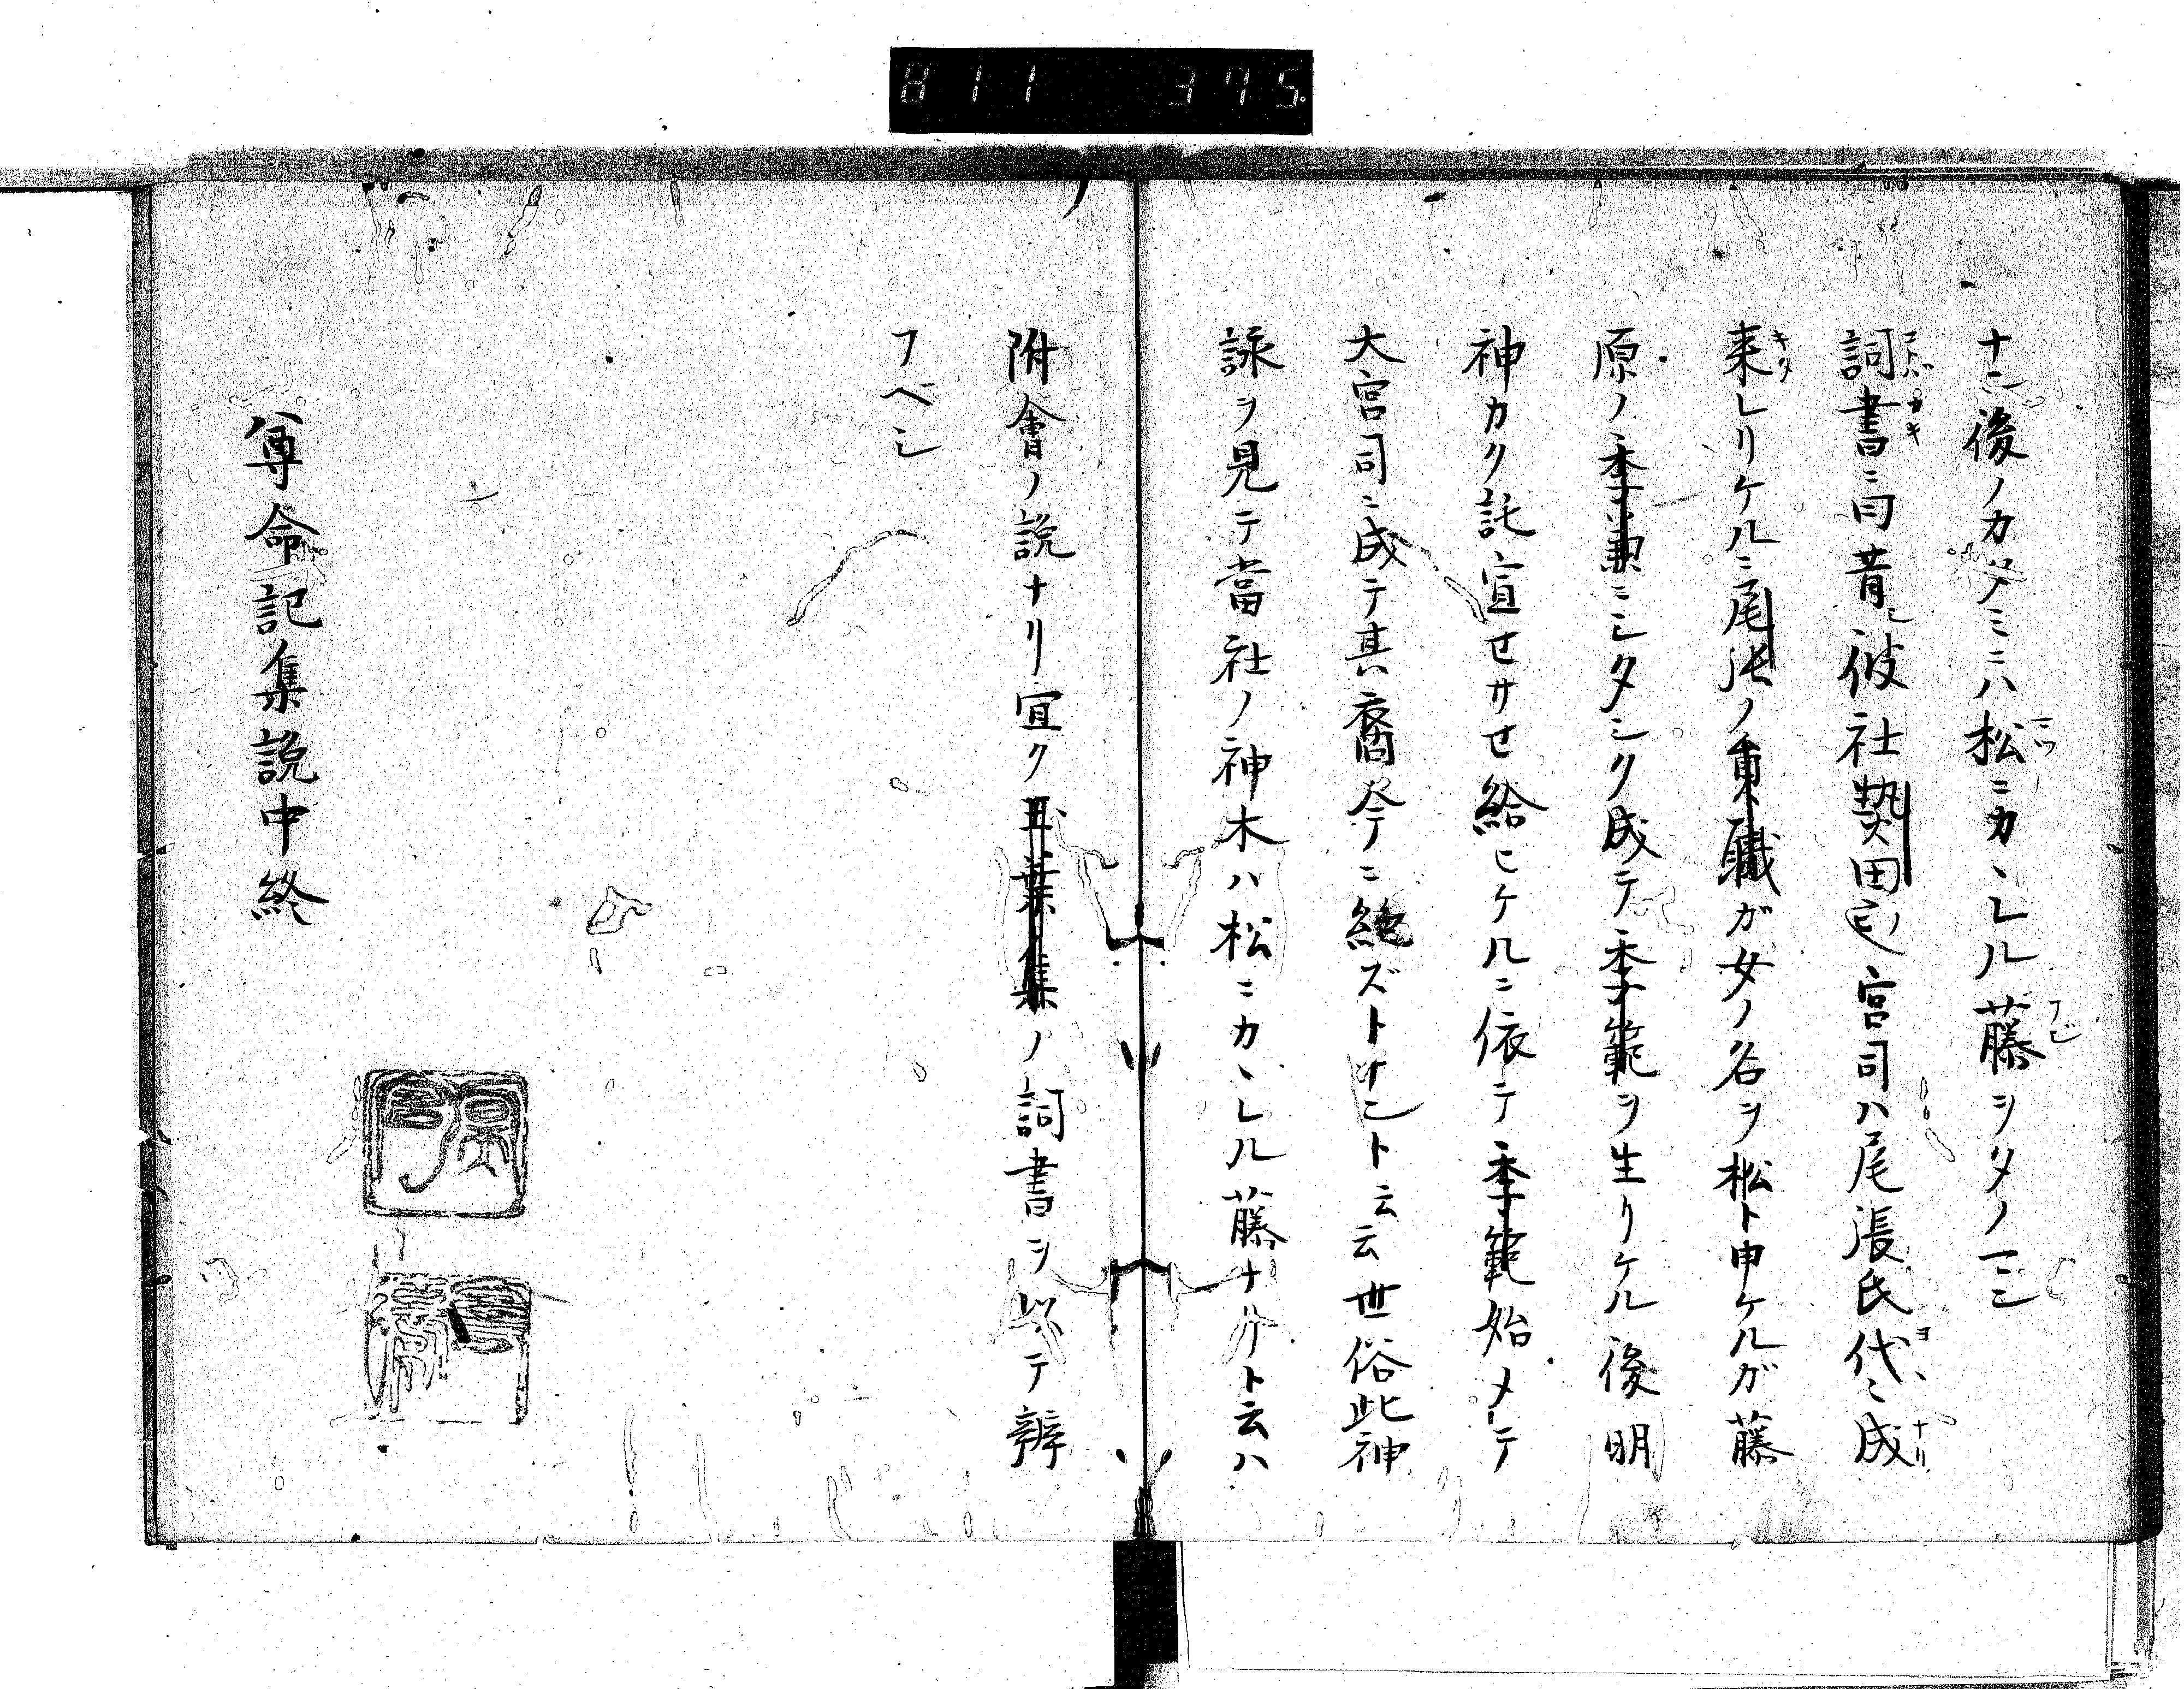 811 375
十ニ後ノカタミニハ松ニカヽレル藤ヲタノマン
詞書ニ曰昔シ彼社熱田ノ宮司ハ尾張氏代ヽニ成
来レリケルニ尾張ノ員職ガ女ノ名ヲ松ト申ケルガ藤
原ノ季兼ニシタシク成テ季範ヲ生リケル後明
神カク託宣セサセ給ヒケルニ依テ季範始メテ
大宮司ニ成テ其裔今ニ絶ズトナント云云世俗此神
詠ヲ見テ當社ノ神木ハ松ニカヽレル藤ナリト云ハ
附會ノ説ナリ宜ク玉葉集ノ詞書ヲ以テ辨
フベシ
尊命記集説中終